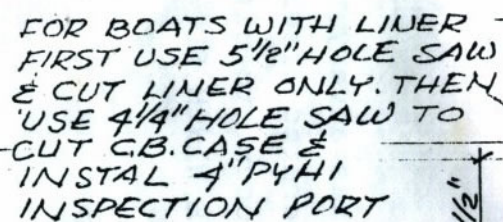 FOR BOATS WITH LINER
FIRST USE 5 1/2" HOLE SAW
& CUT LINER ONLY. THEN
USE 4 1/4" HOLE SAW TO
CUT C.B. CASE &
INSTAL 4" PYHI
INSPECTION PORT
1/2"